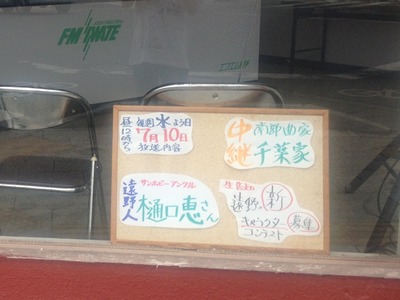 FM IWATE
昼12時から
毎週水よう日
7月10日
放送内容
中継
南部曲家
千葉家
遠野人
サンホビーアングル
樋口恵さん
生まれ
遠野の新
キャラクター
コンテスト
募集